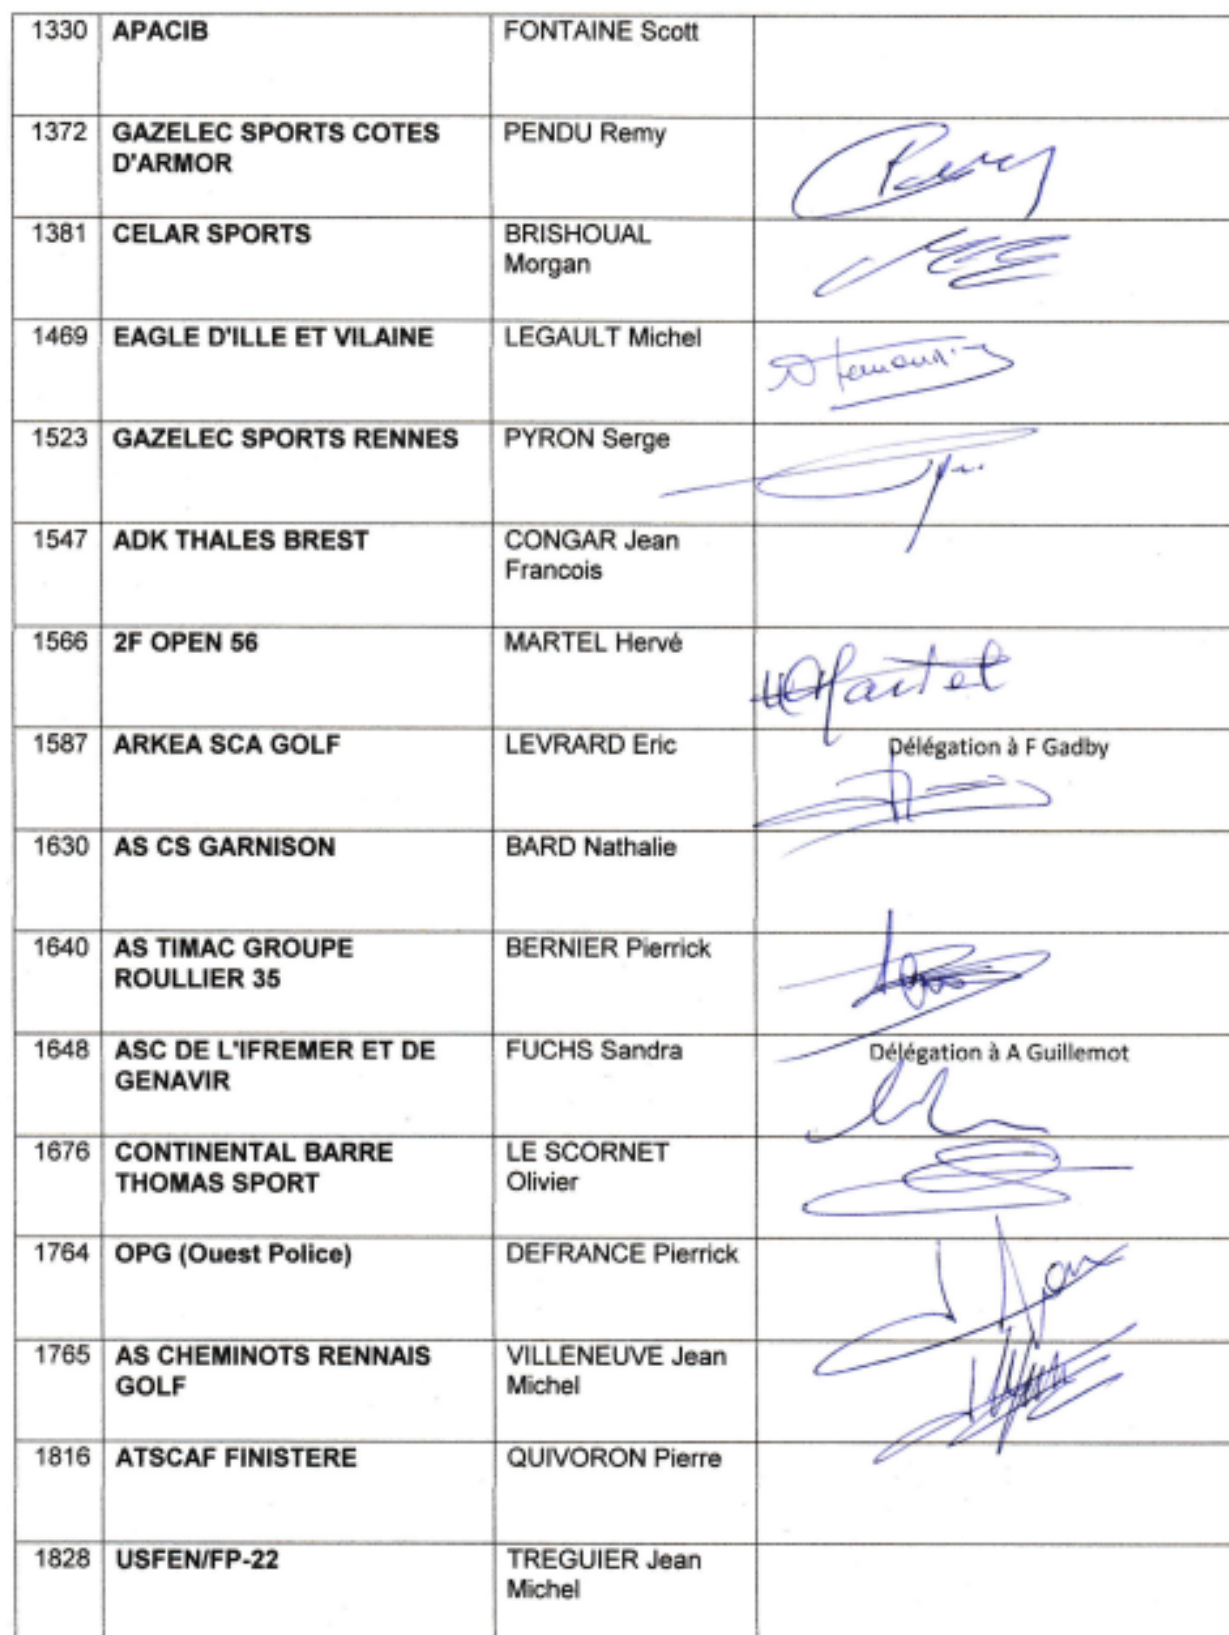 1330 APACIB FONTAINE Scott
1372 GAZELEC SPORTS COTES PENDU Remy
D'ARMOR
1381 CELAR SPORTS BRISHOUAL
Morgan
1469 EAGLE D'ILLE ET VILAINE LEGAULT Michel
1523 GAZELEC SPORTS RENNES PYRON Serge
1547 ADK THALES BREST CONGAR Jean
Francois
1566 2F OPEN 56 MARTEL Hervé
Martel
1587 ARKEA SCA GOLF LEVRARD Eric Délégation à F Gadby
1630 AS CS GARNISON BARD Nathalie
1640 AS TIMAC GROUPE BERNIER Pierrick
ROULLIER 35
1648 ASC DE L'IFREMER ET DE FUCHS Sandra Délégation à A Guillemot
GENAVIR
1676 CONTINENTAL BARRE LE SCORNET
THOMAS SPORT Olivier
1764 OPG (Ouest Police) DEFRANCE Pierrick
1765 AS CHEMINOTS RENNAIS VILLENEUVE Jean
GOLF Michel
1816 ATSCAF FINISTERE QUIVORON Pierre
1828 USFEN/FP-22 TREGUIER Jean
Michel